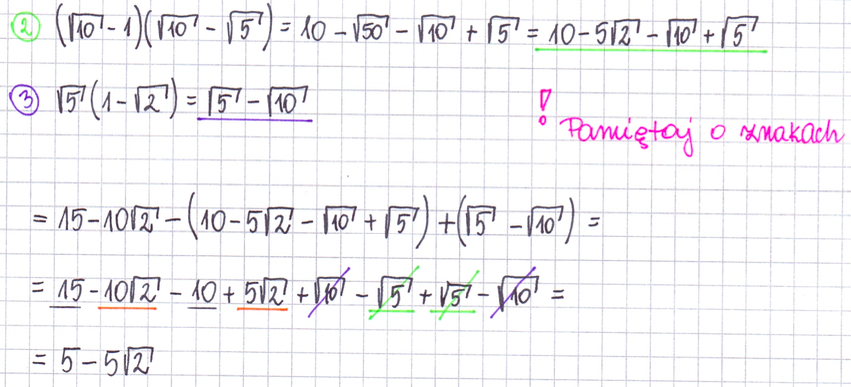 ② (√10 - 1)(√10 - √5) = 10 - √50 - √10 + √5 = 10 - 5√2 - √10 + √5
③ √5(1 - √2) = √5 - √10
! Pamiętaj o znakach
= 15 - 10√2 - (10 - 5√2 - √10 + √5) + (√5 - √10) =
= 15 - 10√2 - 10 + 5√2 + √10 - √5 + √5 - √10 =
= 5 - 5√2